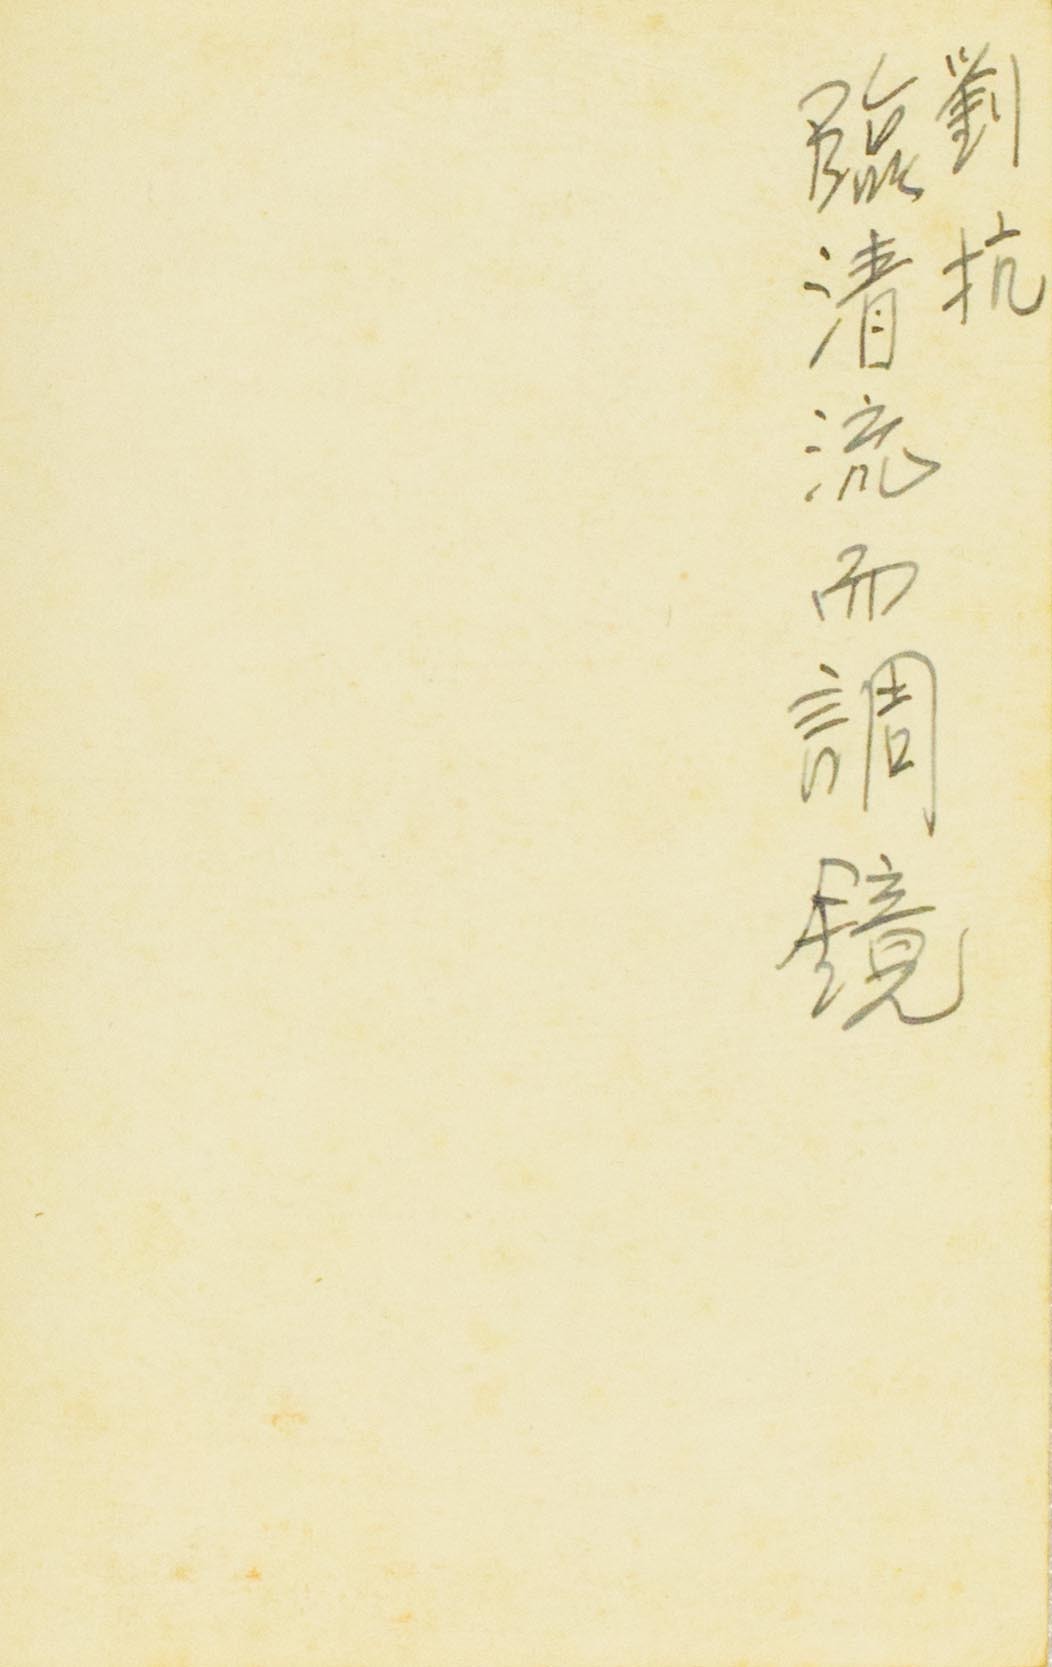 劉抗
臨清流而調鏡